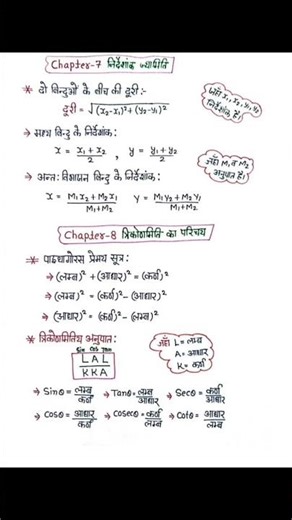 Chapter-7 निर्देशांक ज्यामिति
* दो बिन्दुओं के बीच की दूरी:-
दूरी = √(x₂-x₁)²+(y₂-y₁)²
जहाँ x₁, x₂, y₁, y₂
निर्देशांक है।
→ मध्य बिन्दु के निर्देशांक:
x = x₁ + x₂ / 2 , y = y₁ + y₂ / 2
→ अन्तः विभाजन बिन्दु के निर्देशांक:
जहाँ M₁ व M₂
अनुपात है।
x = M₁x₂ + M₂x₁ / M₁+M₂ y = M₁y₂ + M₂y₁ / M₁+M₂
Chapter-8 त्रिकोणमिति का परिचय
* पाइथागोरस प्रमेय सूत्र:
→ (लम्ब)² + (आधार)² = (कर्ण)²
→ (लम्ब)² = (कर्ण)² - (आधार)²
→ (आधार)² = (कर्ण)² - (लम्ब)²
* त्रिकोणमितीय अनुपात:
Sin Cos Tan
LAL
KKA
जहाँ L = लम्ब
A = आधार
K = कर्ण
→ Sinθ = लम्ब / कर्ण → Tanθ = लम्ब / आधार → Secθ = कर्ण / आधार
→ Cosθ = आधार / कर्ण → Cosecθ = कर्ण / लम्ब → Cotθ = आधार / लम्ब